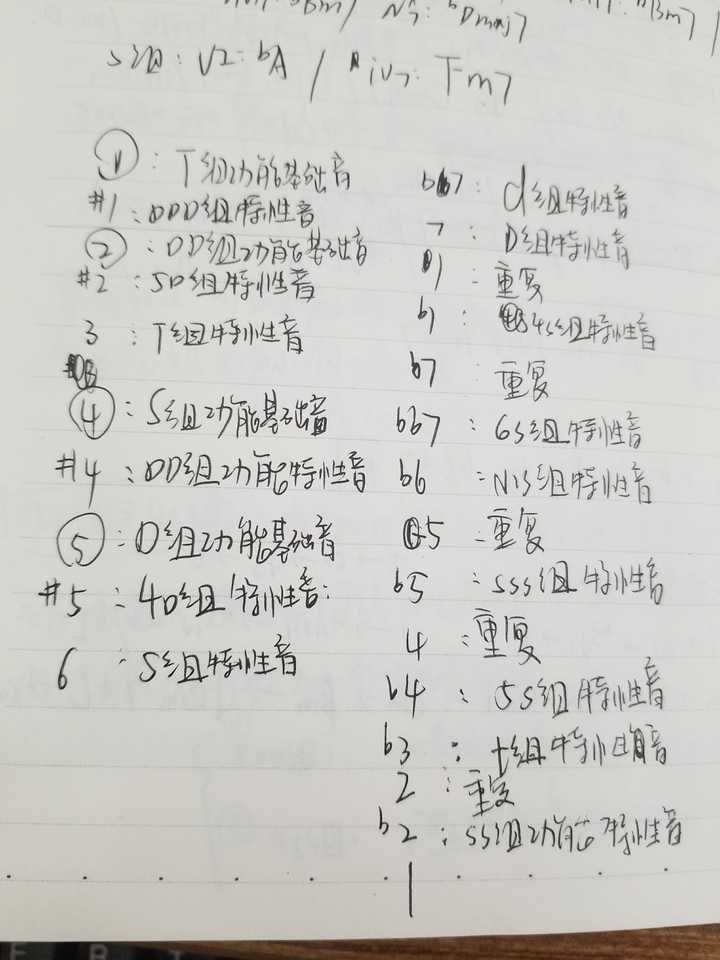 Bm7 / N7: bDmaj7
S组: V2: bA / iv7: Fm7
①: T组功能基础音
#1: DDD组特性音
②: DD组功能基础音
#2: 5D组特性音
3: T组特性音
④: S组功能基础音
#4: DD组功能特性音
⑤: D组功能基础音
#5: 4D组特性音:
6: S组特性音
b7: d组特性音
7: D组特性音
1: 重复
b1: 4S组特性音
b7: 重复
bb7: 6S组特性音
b6: N1S组特性音
5: 重复
b5: SSS组特性音
4: 重复
b4: 5S组特性音
b3: t组特性音
2: 重复
b2: SS组功能特性音